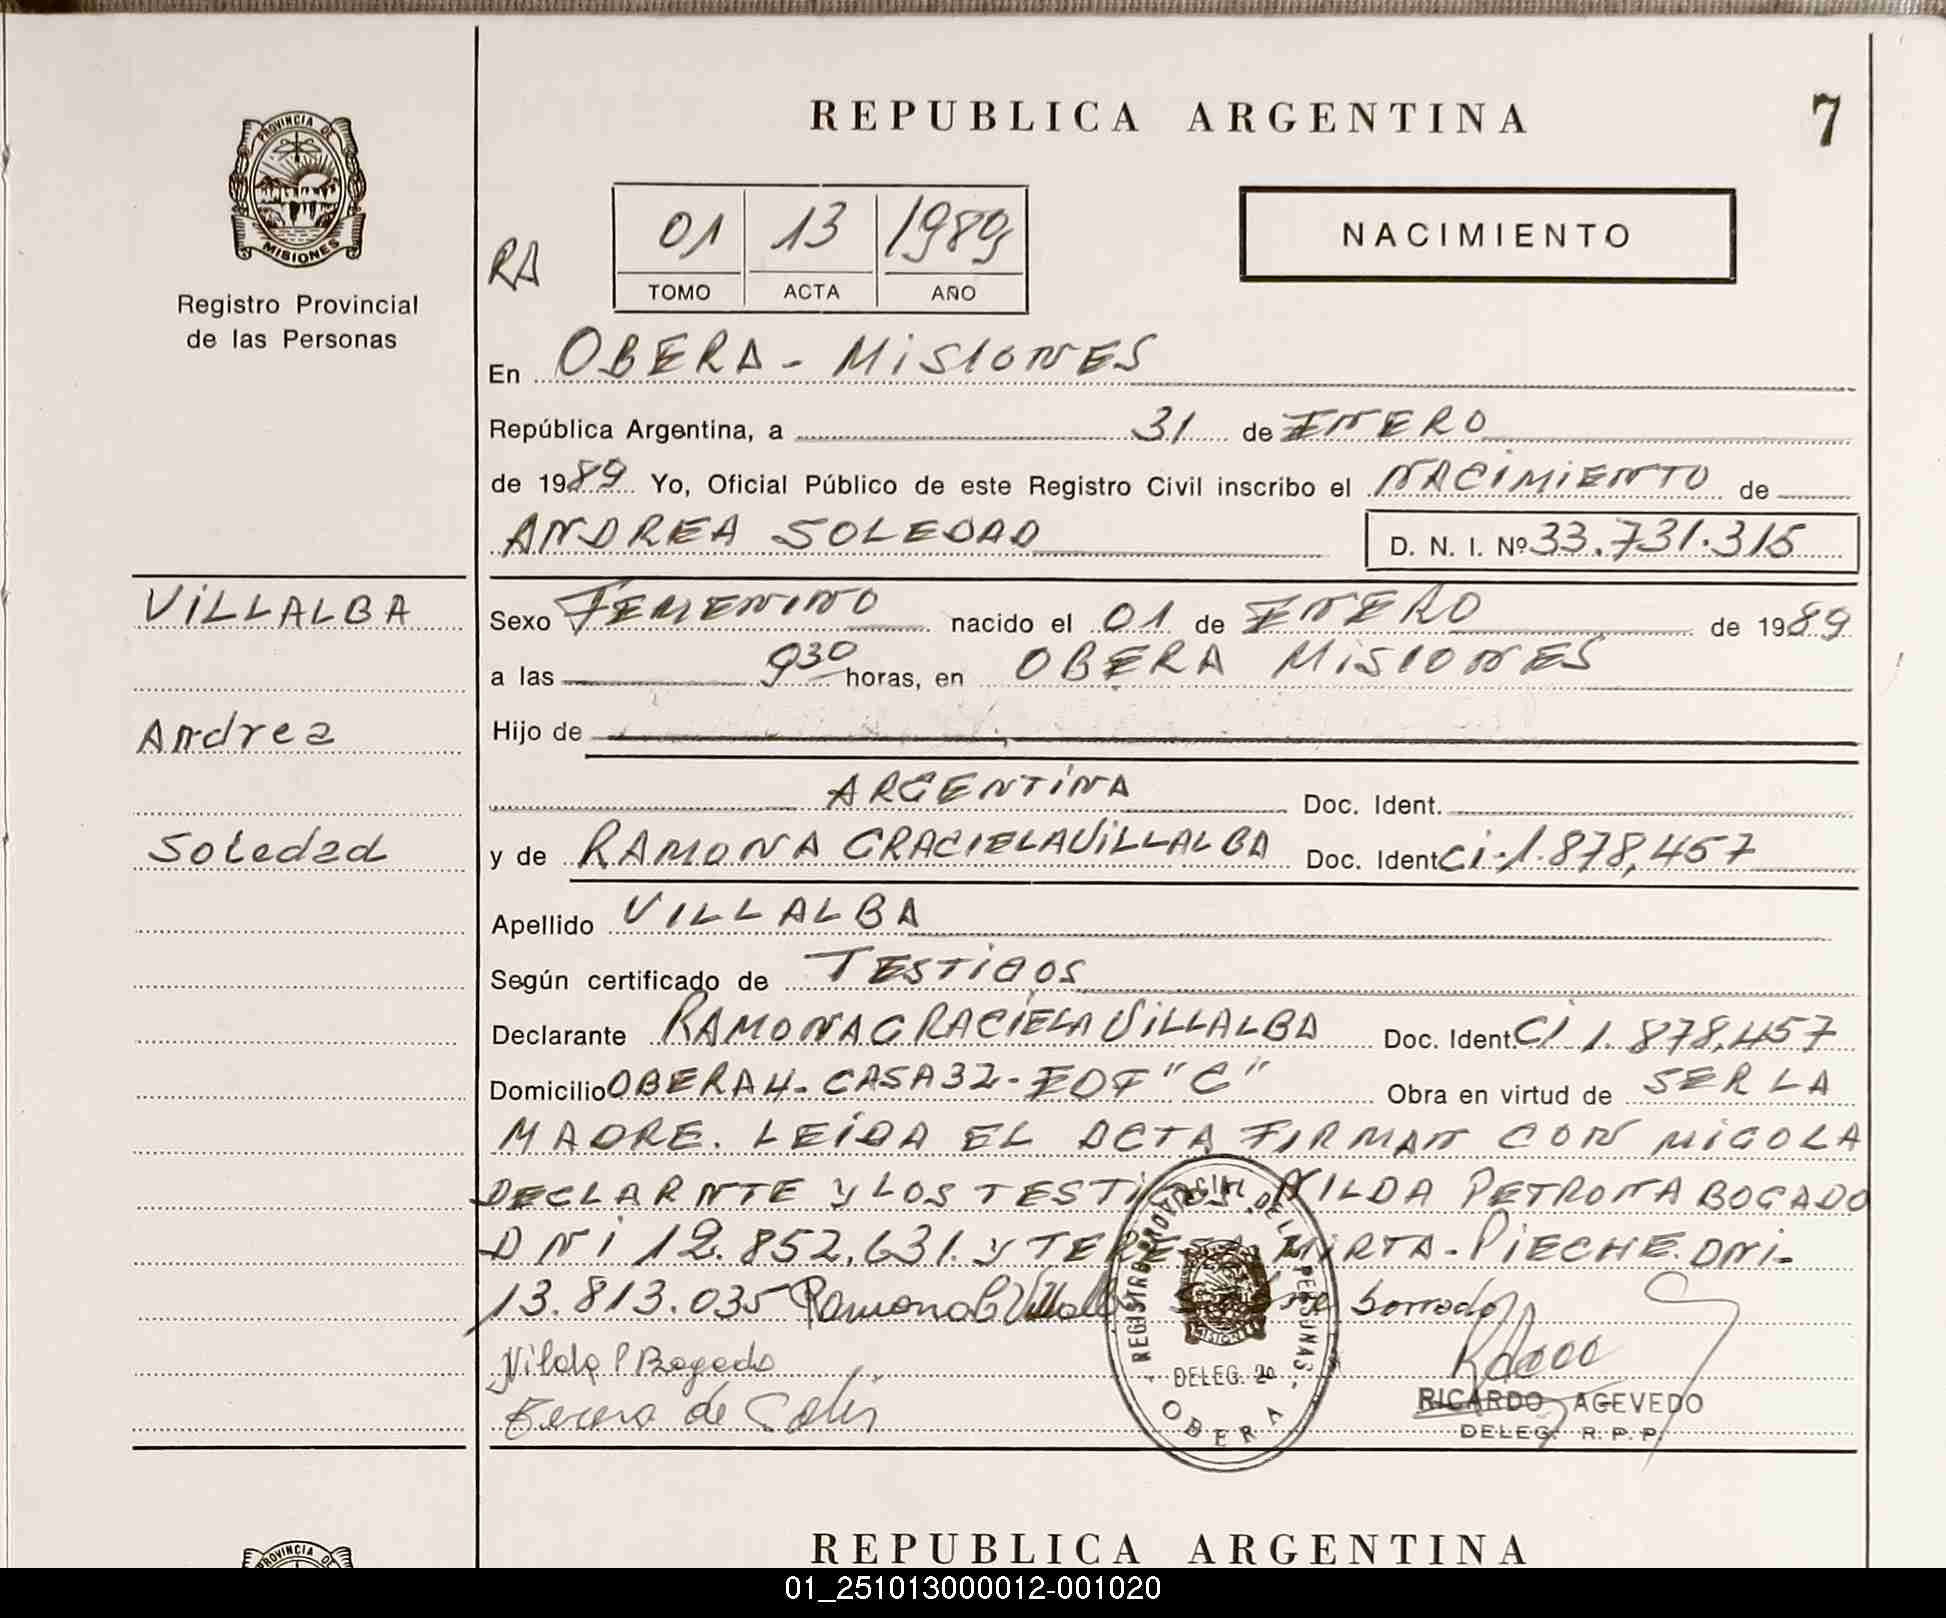 REPUBLICA ARGENTINA
7
PROVINCIA DE
MISIONES
Registro Provincial
de las Personas
RA
01 13 1989
TOMO ACTA AÑO
NACIMIENTO
En OBERA - MISIONES
República Argentina, a 31 de ENERO
de 1989 Yo, Oficial Público de este Registro Civil inscribo el NACIMIENTO de
ANDREA SOLEDAD
D. N. I. Nº 33.731.315
VILLALBA
Andrea
Soledad
Sexo FEMENINO nacido el 01 de ENERO de 1989
a las 9 30 horas, en OBERA MISIONES
Hijo de
ARGENTINA Doc. Ident.
y de RAMONA GRACIELA VILLALBA Doc. Ident Ci. 1.878,457
Apellido VILLALBA
Según certificado de TESTIGOS
Declarante RAMONA GRACIELA VILLALBA Doc. Ident. Ci 1.878,457
Domicilio OBERA 4 - CASA 32 - EDF "C" Obra en virtud de SER LA
MADRE. LEIDA EL ACTA FIRMAN CON MIGO LA
DECLARNTE Y LOS TESTIGOS NILDA PETRONA BOGADO
DNI 12.852.631. y TERESA MIRTA - PIECHE. DNI -
13.813.035 Ramona G Villalba borrado
Nilda P Bogado
REGISTRO PROVINCIAL DE LAS PERSONAS
MISIONES
DELEG. 2º
OBERA
RICARDO ACEVEDO
DELEG. R. P. P.
PROVINCIA DE
REPUBLICA ARGENTINA
01_251013000012-001020